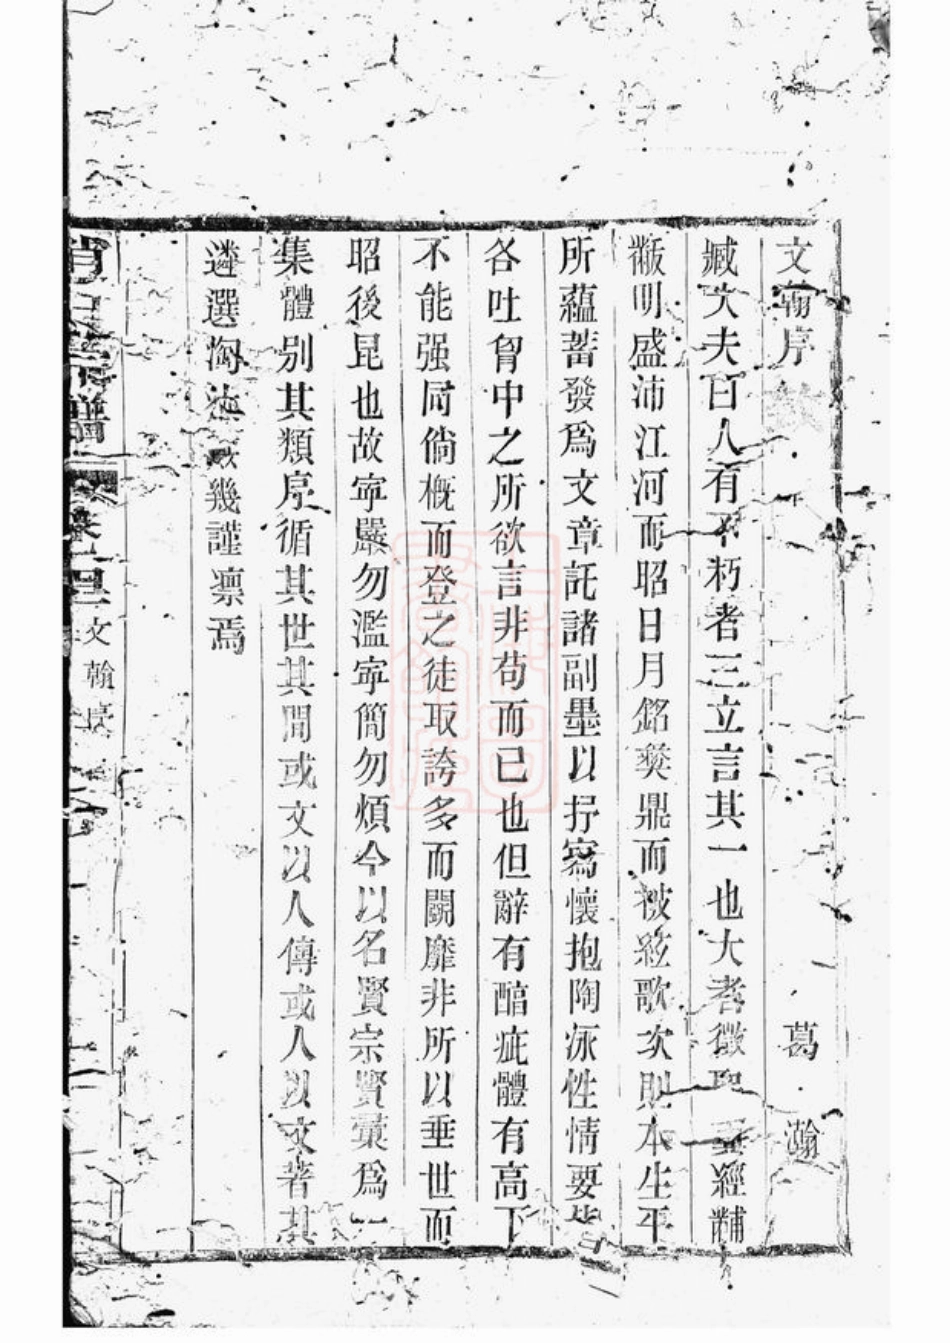 文翰序
葛瀚
臧大夫曰人有不朽者三立言其一也大者微聖經黼
黻明盛沛江河而昭日月銘彝鼎而被絃歌次則本生平
所蘊蓄發爲文章託諸副墨以抒寫懷抱陶泳性情要皆
各吐胷中之所欲言非苟而已也但辭有醕疵體有高下
不能强同倘概而登之徒取誇多而鬬靡非所以垂世而
昭後昆也故寜嚴勿濫寜簡勿煩今以名賢宗賢彙爲一
集體别其類序循其世其間或文以人傳或人以文著其
遴選淘汰幾謹凜焉
肖氏宗譜
卷一
文翰序